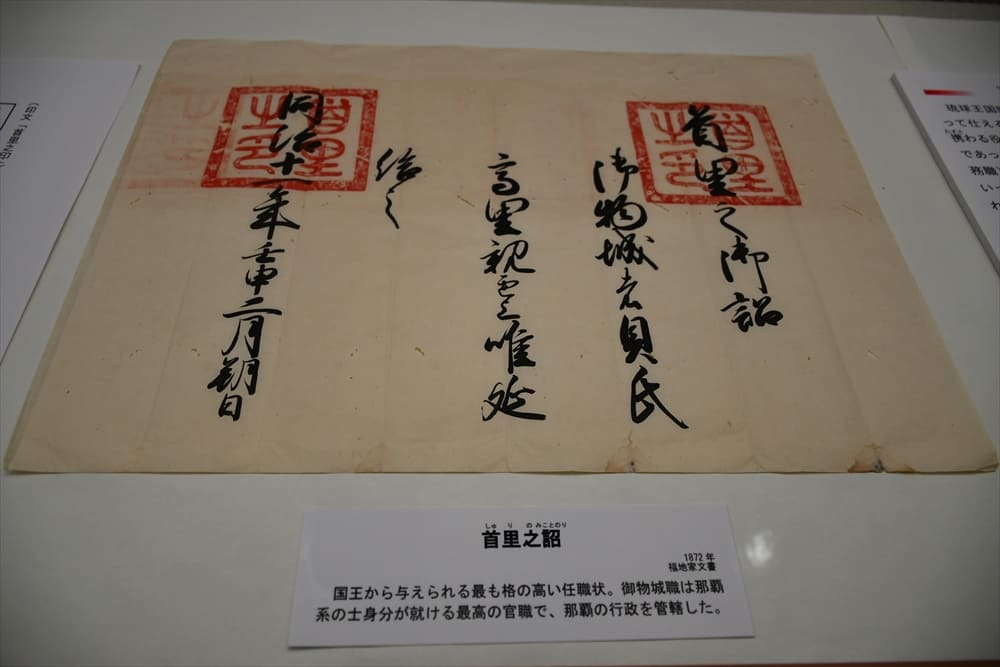 首里之御詔
御物城者貝氏
高里親雲上唯延
給之
同治十一年壬申二月朔日
首里之印
首里之印
首里之詔
しゅりのみことのり
1872年
福地家文書
国王から与えられる最も格の高い任職状。御物城職は那覇
系の士身分が就ける最高の官職で、那覇の行政を管轄した。
(印文「首里之印」)
琉球王国
って仕える
携わる役
であっ
務職
い
れ